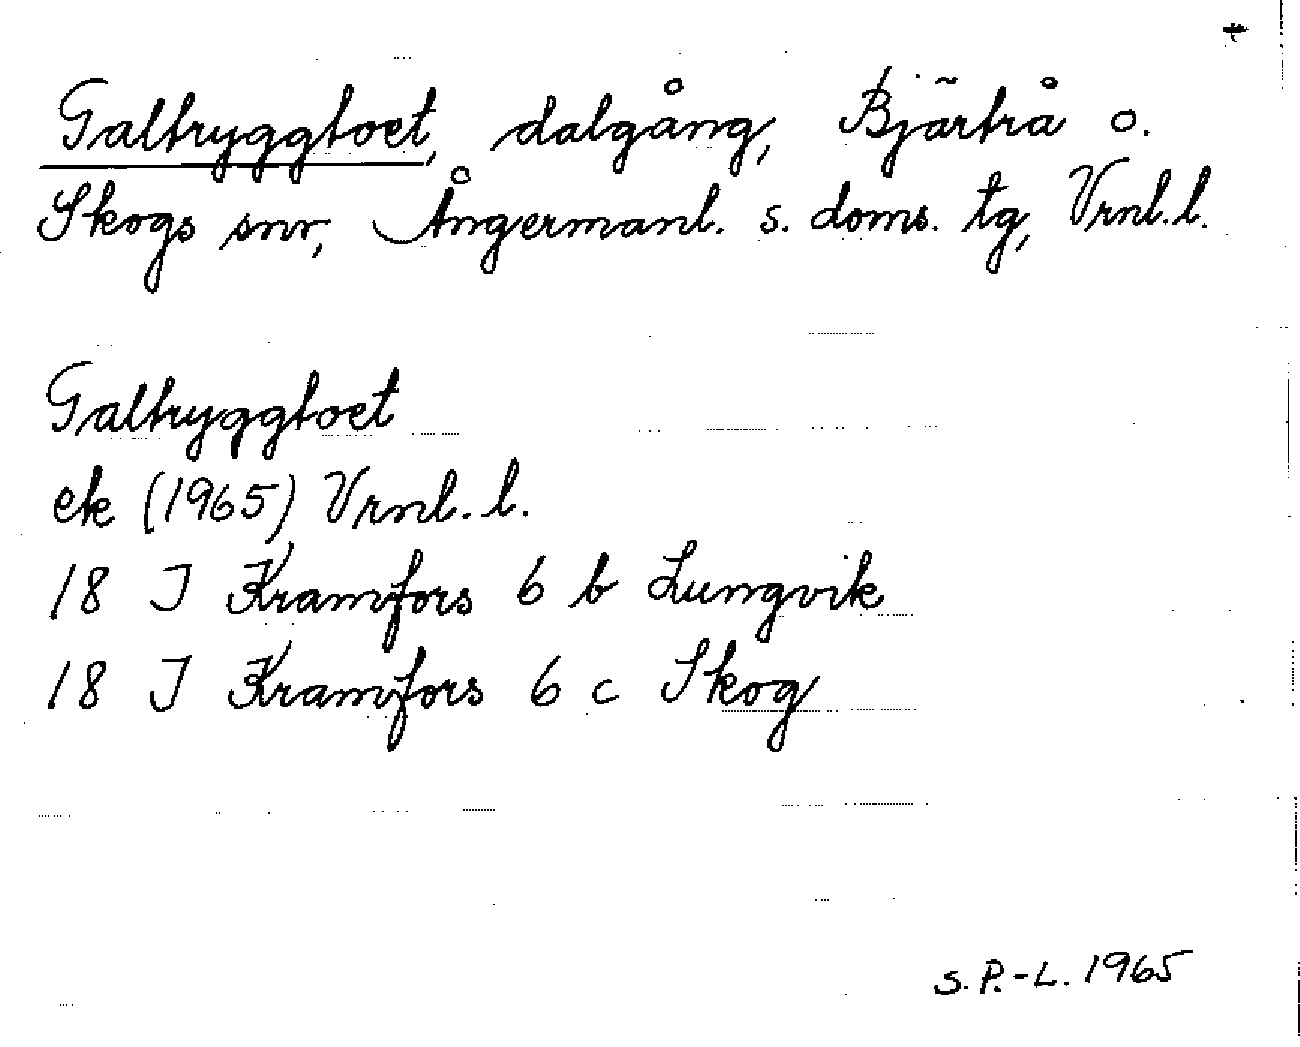 +
Galtryggtoet, dalgång, Bjärtrå o.
Skogs snr, Ångermanl. s. doms. tg, Vrnl.l.
Galtryggtoet
ek (1965) Vrnl.l.
18 J Kramfors 6 b Lungvik
18 J Kramfors 6 c Skog
S.P.-L. 1965